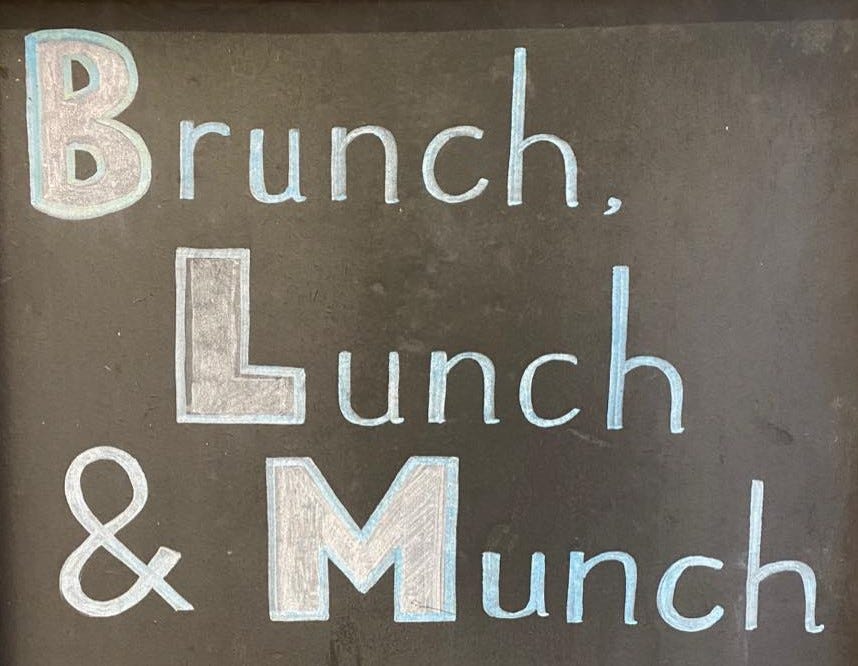 Brunch,
Lunch
& Munch